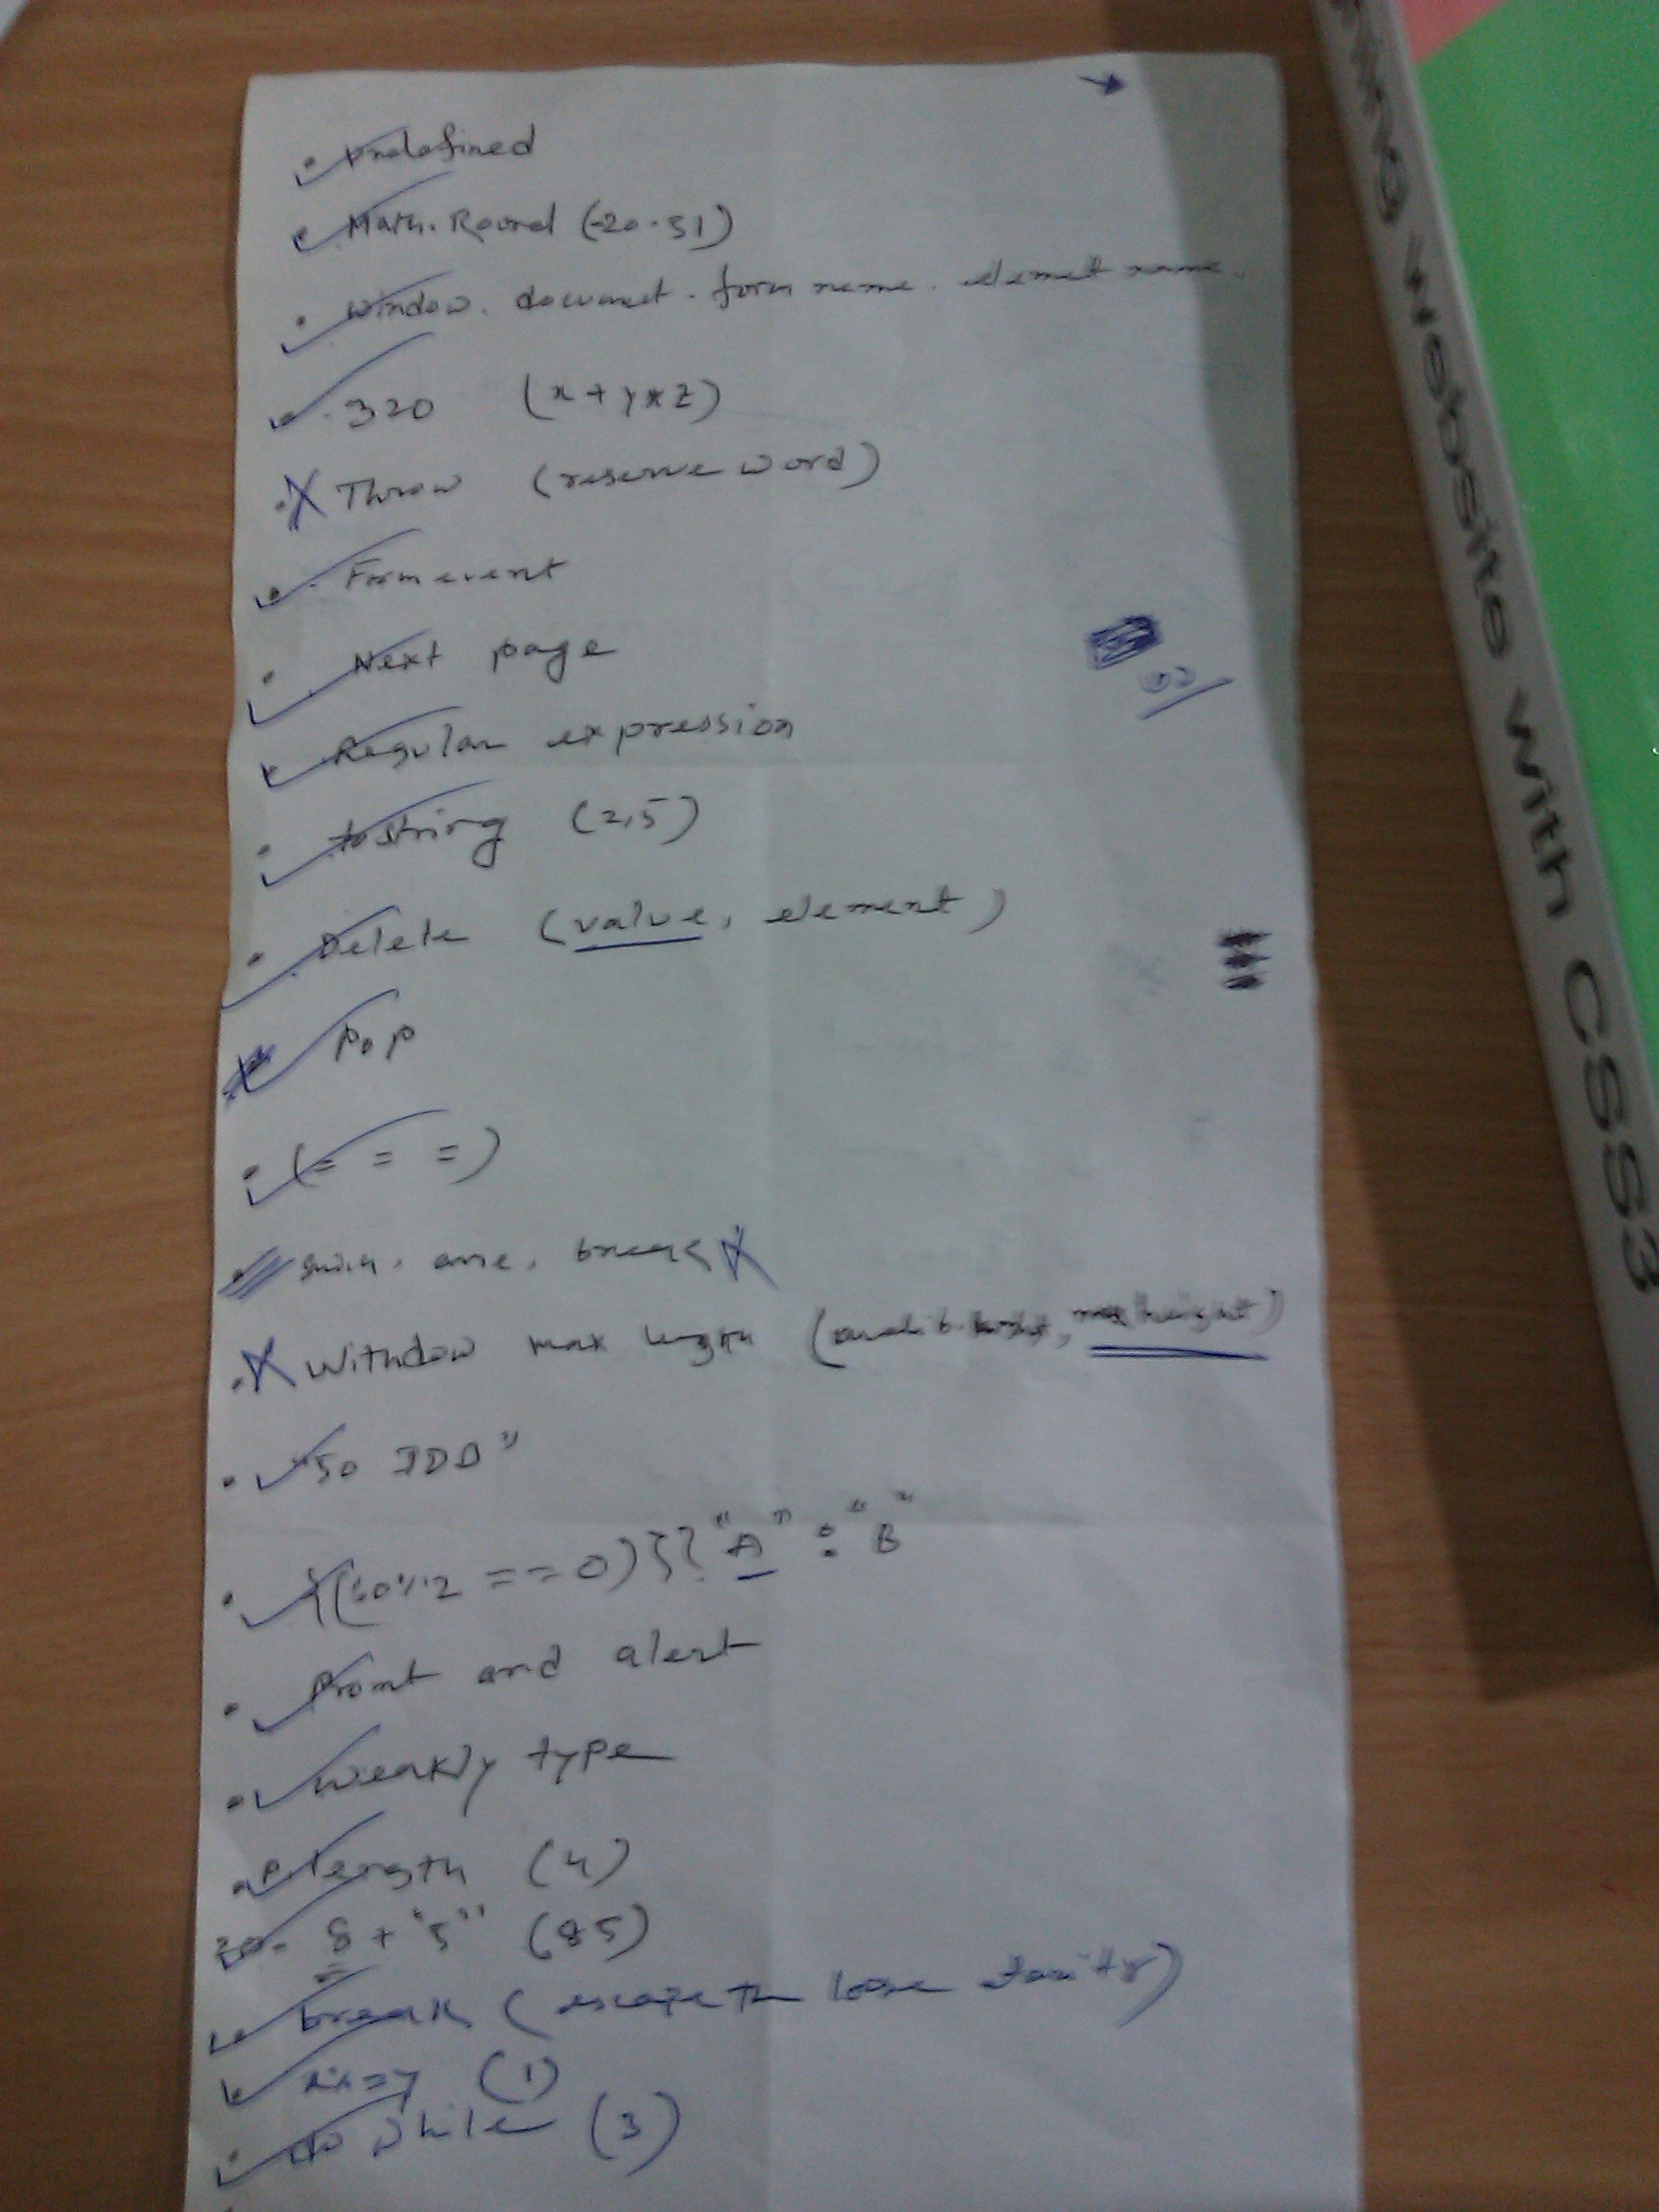 undefined
Math. Round (-20.51)
window. documet. form name. elemet name.
320 (x + y * z)
Throw (reserve word)
Form event
Next page
Regular expression
tostring (2,5)
Delete (value, element)
Pop
(= = =)
break
Withdow max length
"50 300"
== 0) }? "A" : "B"
Promt and alert
weakly type
length (4)
20. 8 + "5" (85)
break (escape the
(1)
do while (3)
Website with CSS3